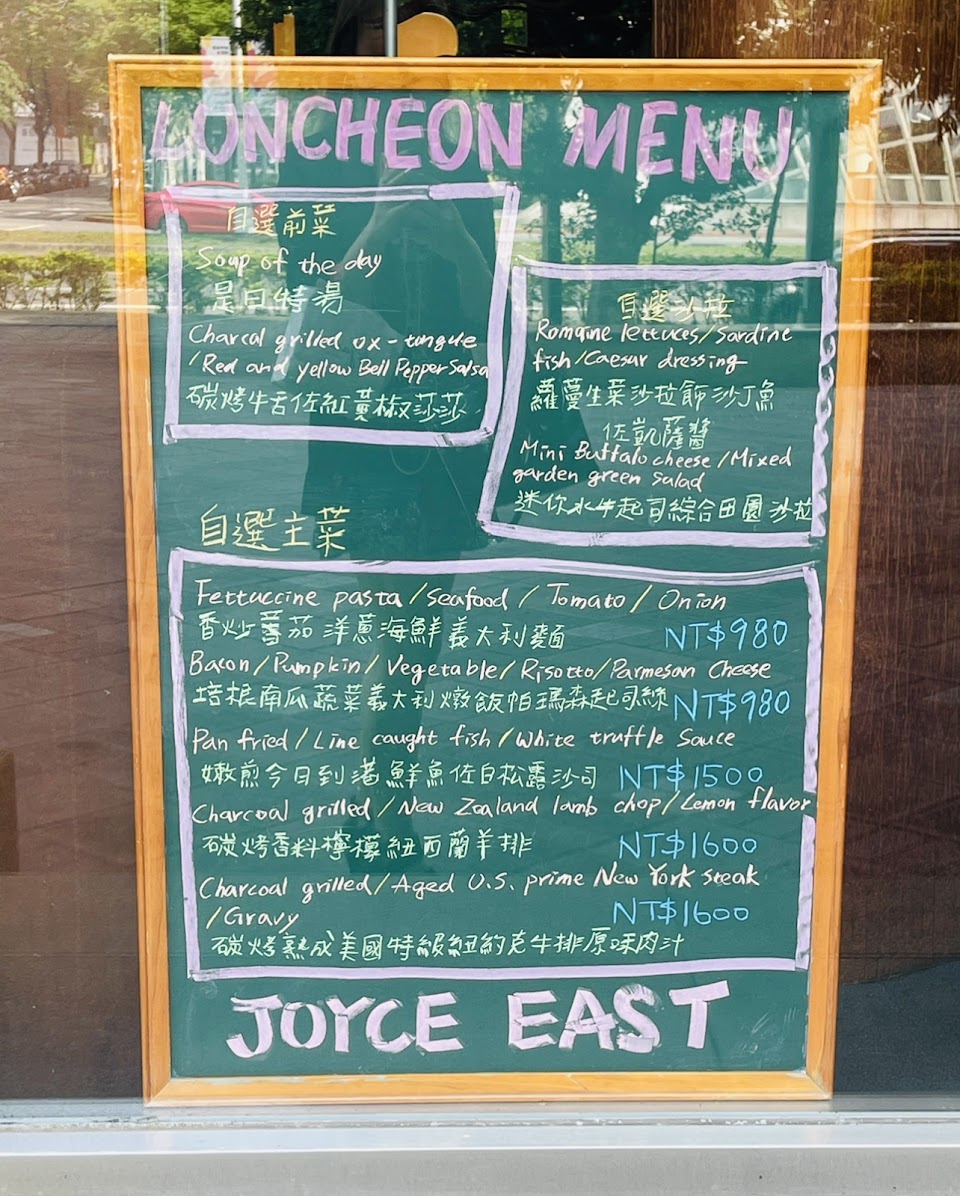 LONCHEON MENU
自選前菜
Soup of the day
是日特湯
Charcal grilled ox-tongue
/Red and yellow Bell Pepper Salsa
碳烤牛舌佐紅黃椒莎莎
自選沙拉
Romaine lettuces/Sardine
fish/Caesar dressing
蘿蔓生菜沙拉飾沙丁魚
佐凱薩醬
Mini Buffalo cheese/Mixed
garden green Salad
迷你水牛起司綜合田園沙拉
自選主菜
Fettuccine pasta/Seafood/Tomato/Onion
香炒蕃茄洋蔥海鮮義大利麵 NT$980
Bacon/Pumpkin/Vegetable/Risotto/Parmesan Cheese
培根南瓜蔬菜義大利燉飯帕瑪森起司絲 NT$980
Pan fried/Line caught fish/White truffle Sauce
嫩煎今日到港鮮魚佐白松露沙司 NT$1500
Charcoal grilled/New Zoaland lamb chop/Lemon flavor
碳烤香料檸檬紐西蘭羊排 NT$1600
Charcoal grilled/Aged U.S. prime New York Steak
/Gravy NT$1600
碳烤熟成美國特級紐約克牛排原味肉汁
JOYCE EAST